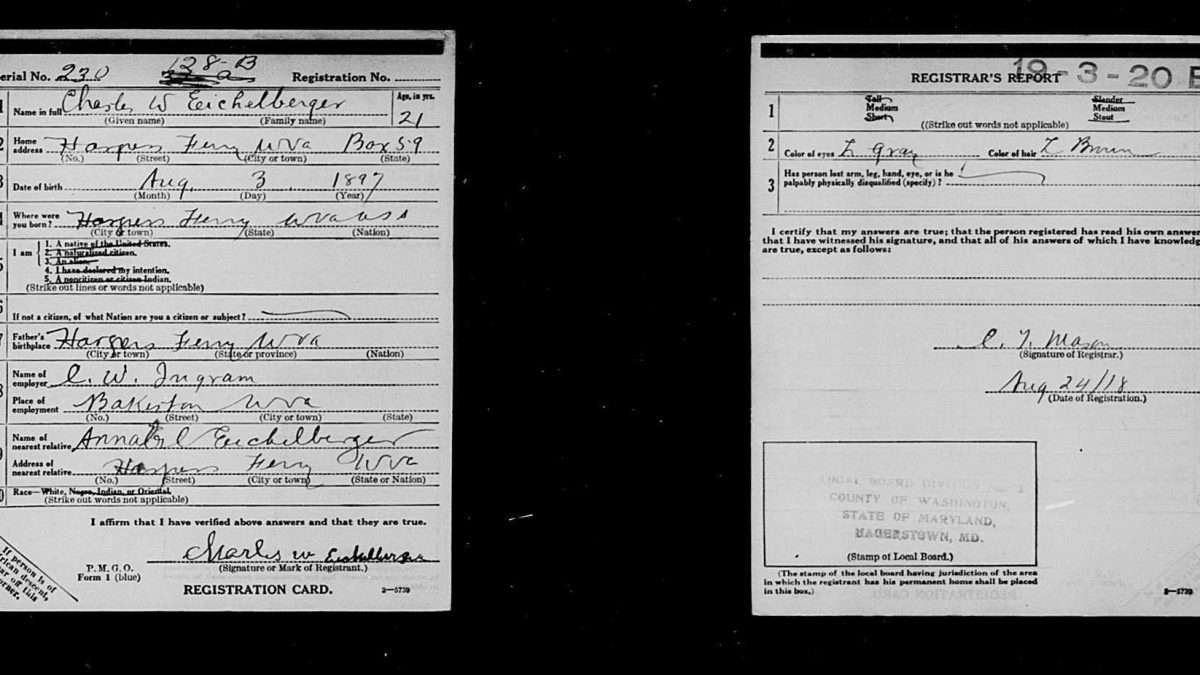 erial No. 230 128-B Registration No.
1 Name in full Charles W Eichelberger Age, in yrs. 21
(Given name) (Family name)
2 Home address Harpers Ferry WVa Box 59
(No.) (Street) (City or town) (State)
3 Date of birth Aug. 3 1897
(Month) (Day) (Year)
Where were you born? Harpers Ferry WVa USA
(City or town) (State) (Nation)
I am
1. A native of the United States.
2. A naturalized citizen.
3. An alien.
4. I have declared my intention.
5. A noncitizen or citizen Indian.
(Strike out lines or words not applicable)
If not a citizen, of what Nation are you a citizen or subject?
7 Father's birthplace Harpers Ferry WVa
(City or town) (State or province) (Nation)
8 Name of employer C. W. Ingram
Place of employment Bakerton WVa
(No.) (Street) (City or town) (State)
9 Name of nearest relative Eichelberger
Address of nearest relative Harpers Ferry WVa
(No.) (Street) (City or town) (State or Nation)
0 Race—White, Negro, Indian, or Oriental.
(Strike out words not applicable)
I affirm that I have verified above answers and that they are true.
Charles W Eichelberger
(Signature or Mark of Registrant.)
P. M. G. O.
Form 1 (blue)
REGISTRATION CARD. 2—5729
If person is of
rican descent,
ar off this
orner.
REGISTRAR'S REPORT 19-3-20 B
1 Tall Medium Short Slender Medium Stout
((Strike out words not applicable)
2 Color of eyes L Gray Color of hair L Brown
3 Has person lost arm, leg, hand, eye, or is he
palpably physically disqualified (specify)?
I certify that my answers are true; that the person registered has read his own answer
that I have witnessed his signature, and that all of his answers of which I have knowledg
are true, except as follows:
C. T. Mason
(Signature of Registrar.)
Aug 24/18
(Date of Registration.)
LOCAL BOARD DIVISION
COUNTY OF WASHINGTON,
STATE OF MARYLAND,
HAGERSTOWN, MD.
(Stamp of Local Board.)
(The stamp of the local board having jurisdiction of the area
in which the registrant has his permanent home shall be placed
in this box.)
2—5729
REGISTRATION CARD.